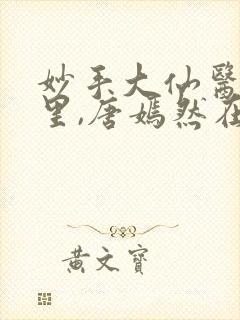 妙手大仙醫
里,唐嫣然在
黃文寶